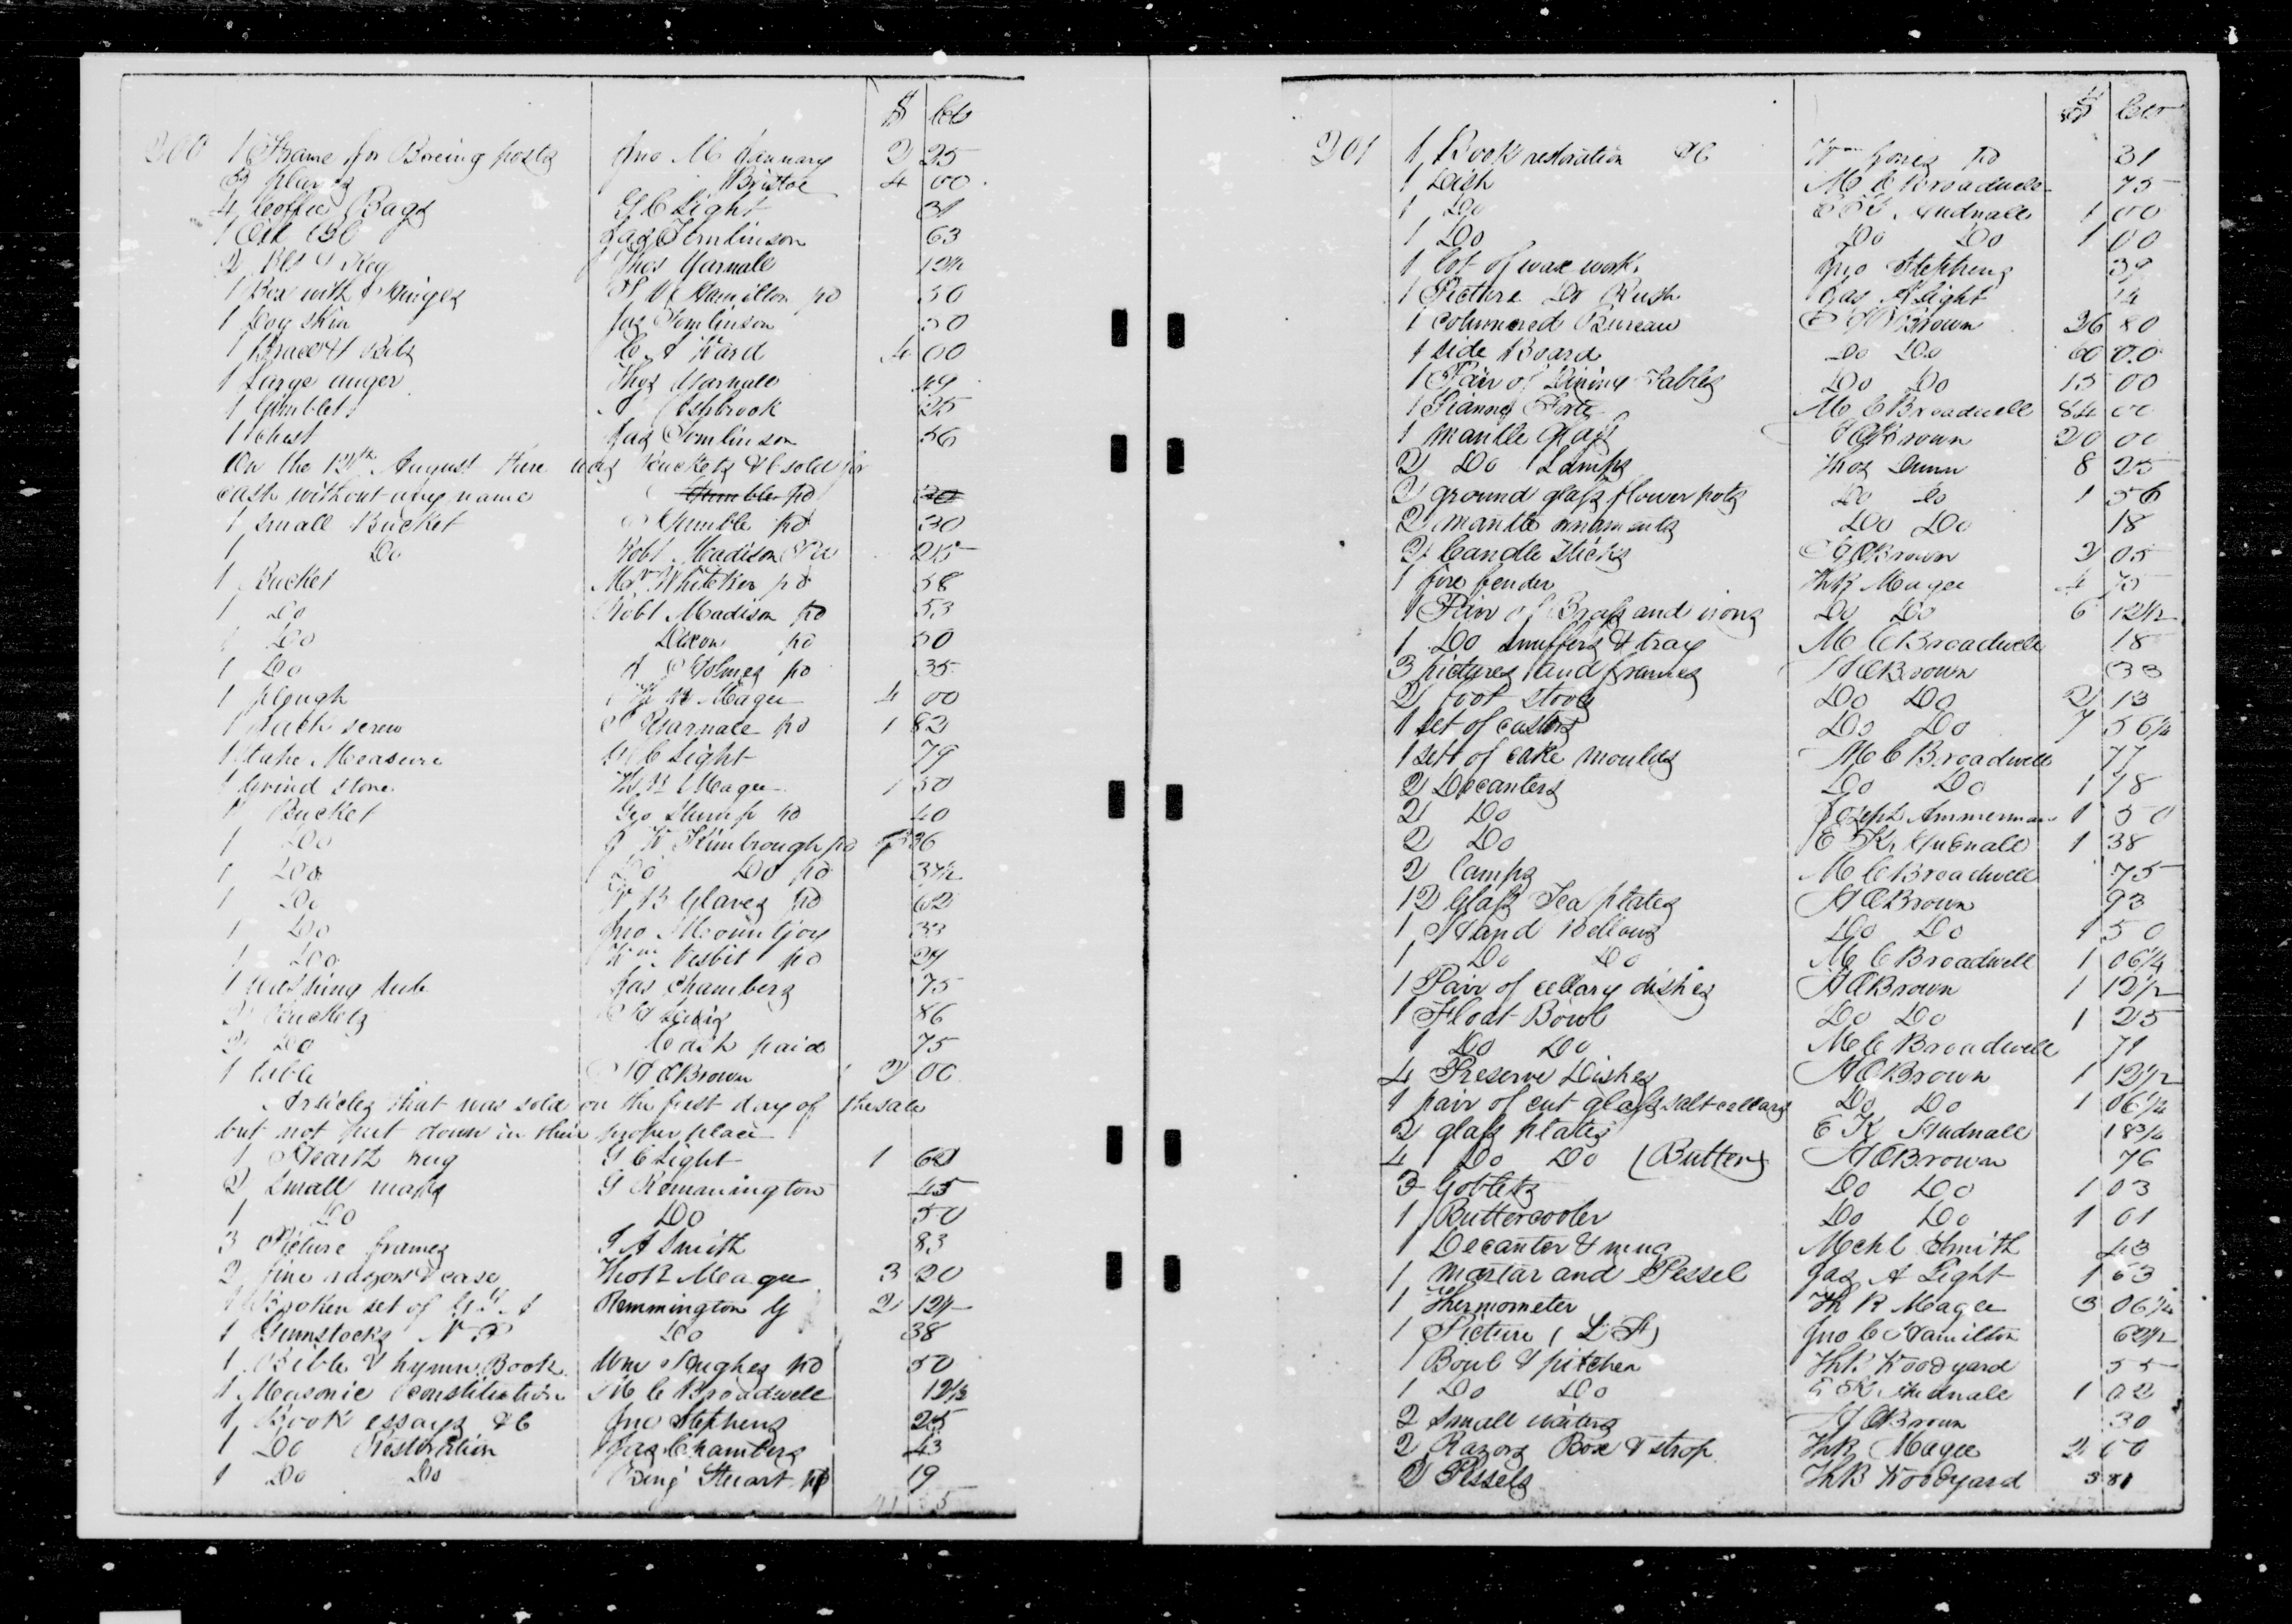 $ Cts
200 1 Frame for Boreing posts Jno M January 2 25
3 planes Bristoe 4 00
4 Coffee Bags G C Light 31
1 Oil Jas Tomlinson 63
2 Bls & Keg Thos Yarnall 12½
1 Box with Hinges Hamilton pd 50
1 Dog skin Jas Tomlinson 50
1 Brace & Bitts Ward 4 00
1 Large auger Thos Yarnall 49
1 Gimblet Ashbrook 25
1 Chest Jas Tomlinson 56
On the 12th August there was Buckets &c sold for
cash without any name pd
1 Small Bucket Gumble pd 30
1 Do Robt Madison 25
1 Bucket Mr Whitaker pd 58
1 Do Robt Madison pd 53
1 Do Dixon pd 50
1 Do Holmes pd 35
1 plough Magee 4 00
1 screw Yarnall pd 1 82
1 tape Measure G C Light 79
1 Grind stone Magee 1 50
1 Bucket Geo Stump pd 40
1 Do Kimbrough pd 36
1 Do Do Do pd 37½
1 Do B Glaves pd 62
1 Do Jno Mountjoy 33
1 Do Wm Nesbit pd 27
1 washing tub Jas Chambers 75
2 Buckets 86
2 Do Cash paid 75
1 table H C Brown 2 00
Articles that was sold on the first day of the sale
but not put down in their proper place
1 Hearth rug G C Light 1
2 Small maps G Remmington 45
1 Do Do 50
3 Picture frames Smith 83
2 fine razors & case Thos R Magee 3 20
1 Broken set of Remmington G 2 12½
1 Gunstocks Do 38
1 Bible & hymn Book Wm Hughes pd 50
1 Masonic Constitution M C Broadwell 12½
1 Book essays &c Jno Stephens 25
1 Do Restoration Jas Chambers 43
1 Do Do Stuart pd 19
$ Cts
201 1 Book restoration &c Wm Jones pd 31
1 Dish M C Broadwell 75
1 Do E K Hudnall 1 00
1 Do Do Do 1 00
1 lot of wax work Jno Stephens 39
1 Picture Do Rush Jas A Light 14
1 Columned Bureau Brown 26 80
1 Side Board Do Do 60 00
1 Pair of Dining Tables Do Do 15 00
1 Pianny Forte M C Broadwell 84 00
1 mantle Glass Brown 20 00
2 Do Lamps Thos Dunn 8 25
2 ground glass flower pots Do Do 1 56
2 mantle ornaments Do Do 18
2 Candle Sticks Brown 2 05
1 fire fender Th R Magee 4 75
1 Pair of Brass and irons Do Do 6 12½
1 Do Snuffers & tray M C Broadwell 18
3 pictures and frames H C Brown 33
2 foot stools Do Do 2 13
1 set of castors Do Do 7 56¼
1 sett of cake moulds M C Broadwell 77
2 Decanters Do Do 1 18
2 Do Joseph Ammerman 1 50
2 Do E K Hudnall 1 38
2 Lamps M C Broadwell 75
12 Glass Tea plates H C Brown 93
1 Hand Bellows Do Do 1 50
1 Do Do M C Broadwell 1 06¼
1 Pair of cellary dishes H C Brown 1 12½
1 Float Bowl Do Do 1 25
1 Do Do M C Broadwell 71
4 Preserve Dishes H C Brown 1 12½
1 pair of cut glass salt cellars Do Do 1 06¼
2 glass plates E K Hudnall 18¾
4 Do Do (Butter) H C Brown 76
3 Goblets Do Do 1 03
1 Buttercooler Do Do 1 01
1 Decanter & mug Mchl Smith 43
1 Martar and Pessel Jas A Light 1 63
1 Thermometer Th R Magee 3 06¼
1 Picture (L F) Jno C Hamilton 62½
1 Bowl & pitcher Th B Woodyard 55
1 Do Do E K Hudnall 1 02
2 Small waiters H C Brown 30
2 Razors Box & strop Th R Magee 2 00
2 Pessels Th B Woodyard 3 81